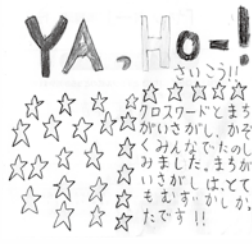 YA,Ho-!
さいこう!!
クロスワードとまち
がいさがし、かぞ
くみんなでたのし
みました。まちが
いさがしは、とて
もむずかしか。
たです!!